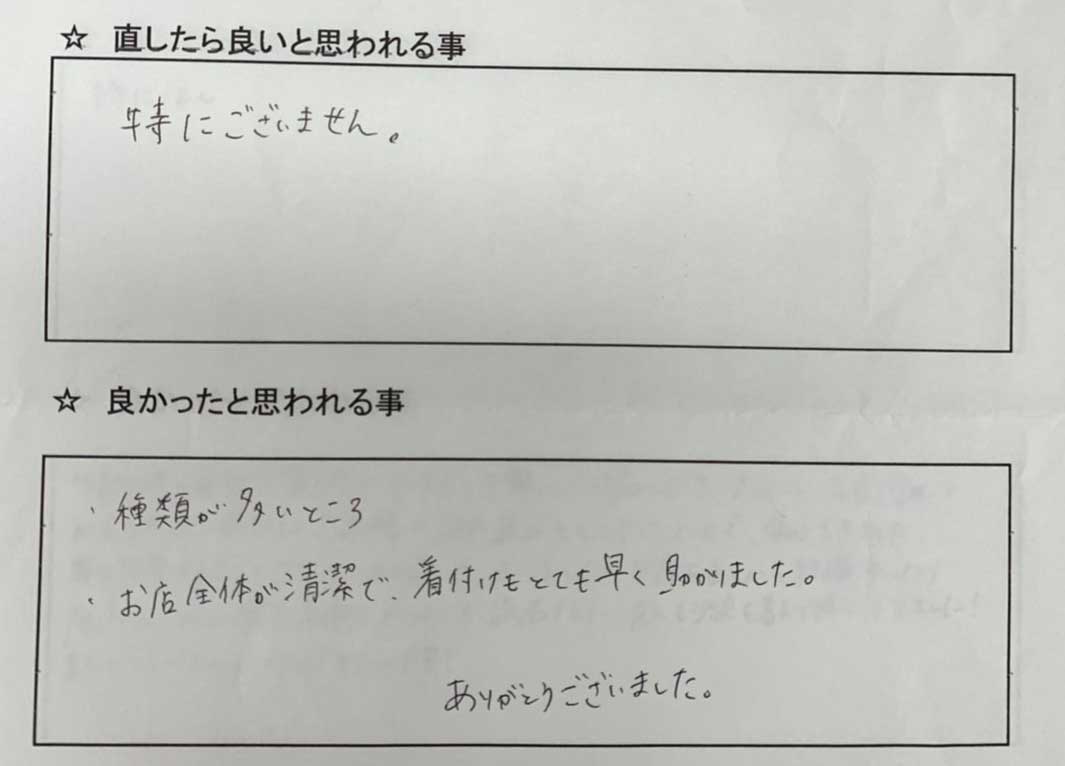 ☆ 直したら良いと思われる事
特にございません。
☆ 良かったと思われる事
・種類が多いところ
・お店全体が清潔で、着付けもとても早く助かりました。
ありがとうございました。